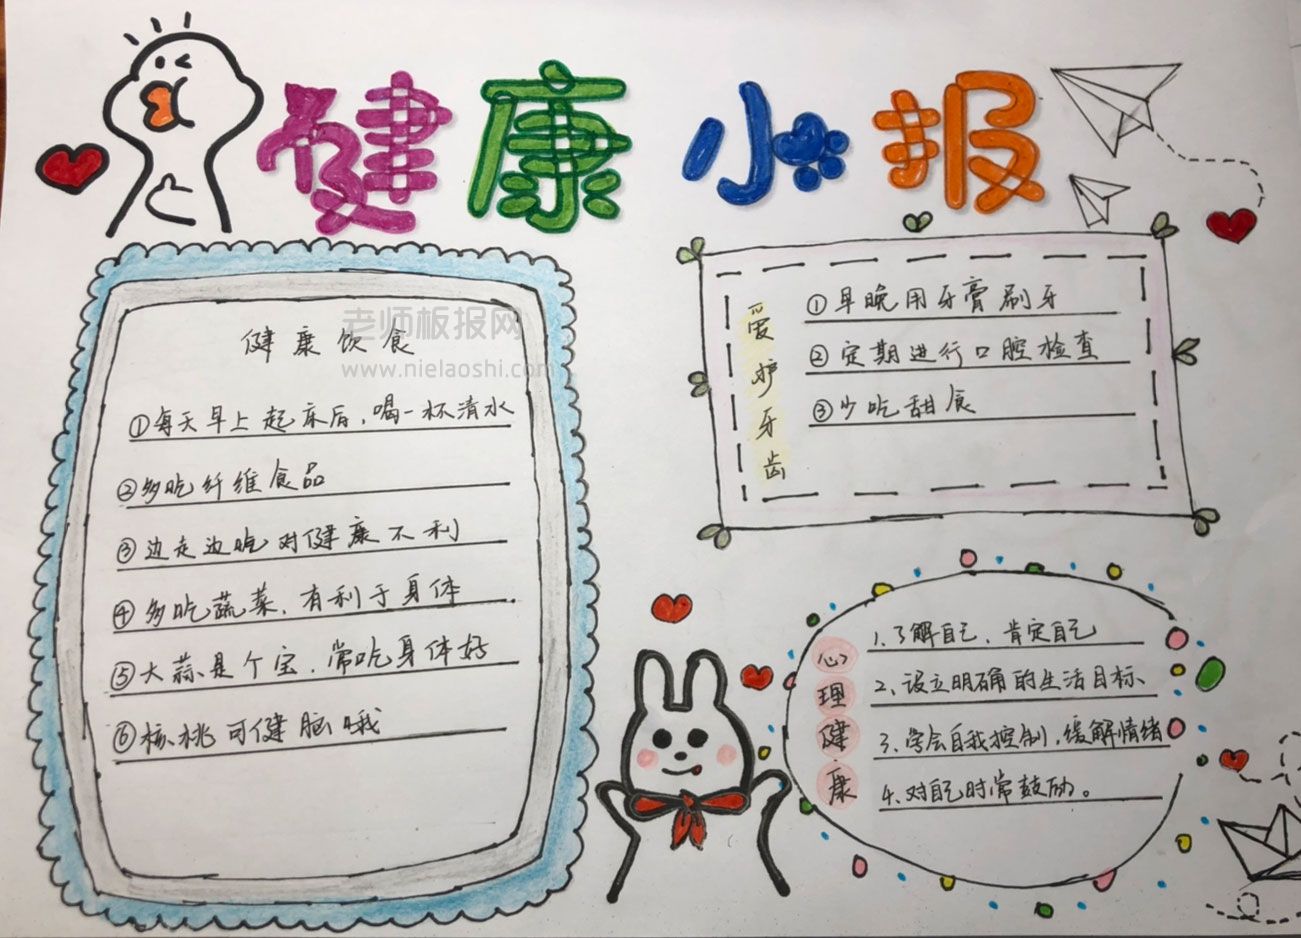 健康小报
健康饮食
老师板报网
www.nielaoshi.com
①每天早上起床后,喝一杯清水
②多吃纤维食品
③边走边吃对健康不利
④多吃蔬菜,有利于身体
⑤大蒜是个宝,常吃身体好
⑥核桃可健脑哦
爱护牙齿
①早晚用牙膏刷牙
②定期进行口腔检查
③少吃甜食
心理健康
1.了解自己、肯定自己
2、设立明确的生活目标、
3、学会自我控制,缓解情绪
4、对自己时常鼓励。